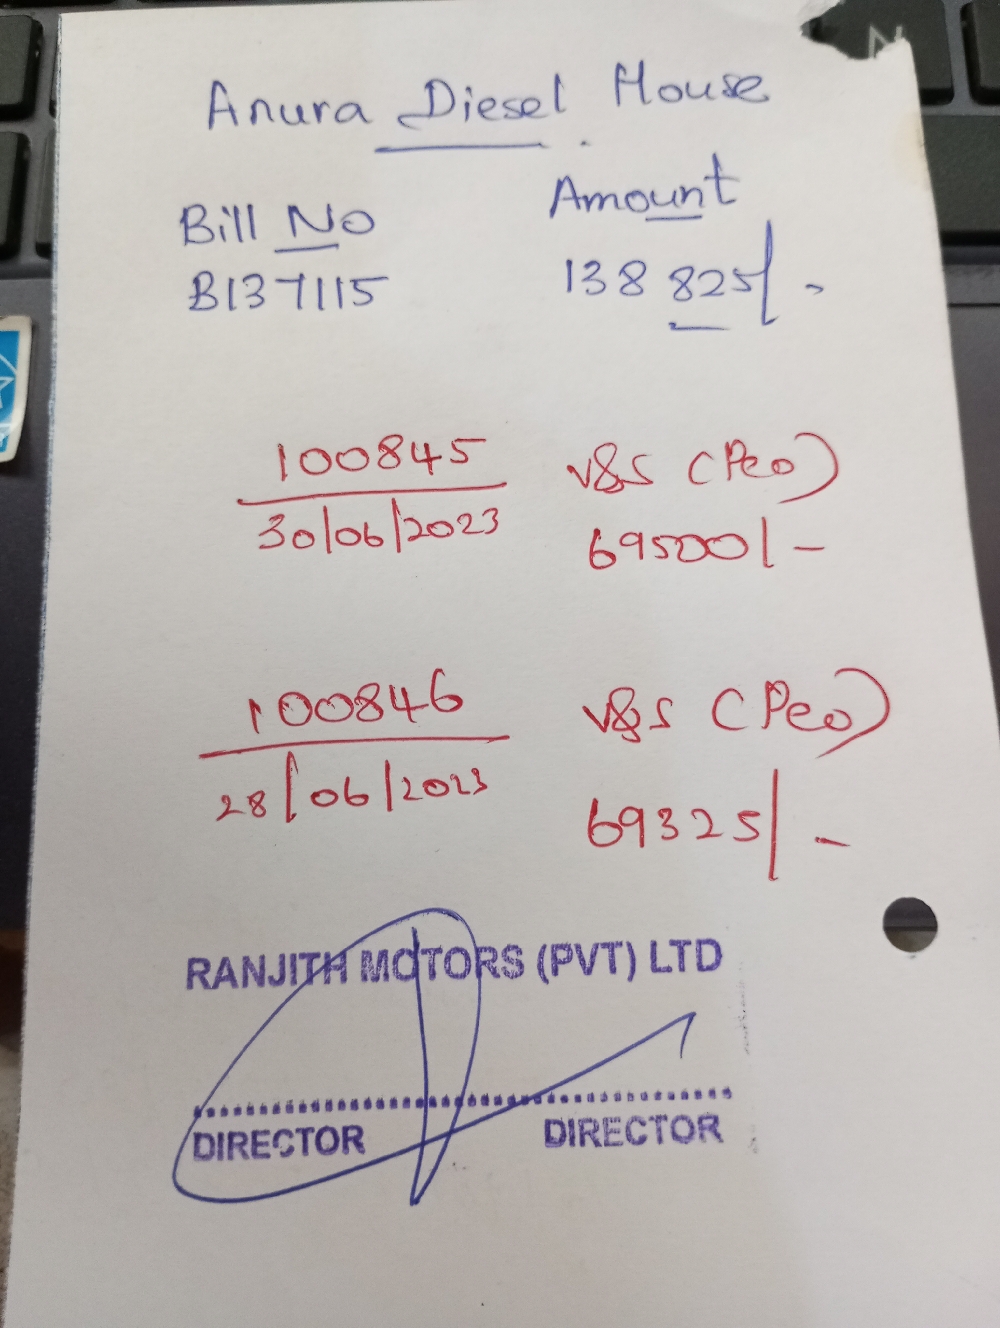 Anura Diesel House
Bill No Amount
B137115 138 825/-
100845 V&S (Peo)
30/06/2023 69500/-
100846 V&S (Peo)
28/06/2023 69325/-
RANJITH MOTORS (PVT) LTD
DIRECTOR DIRECTOR